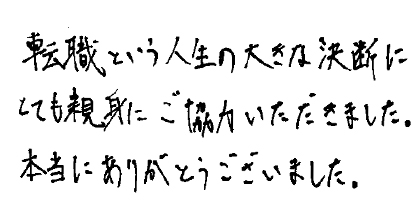 転職という人生の大きな決断に
とても親身にご協力いただきました。
本当にありがとうございました。